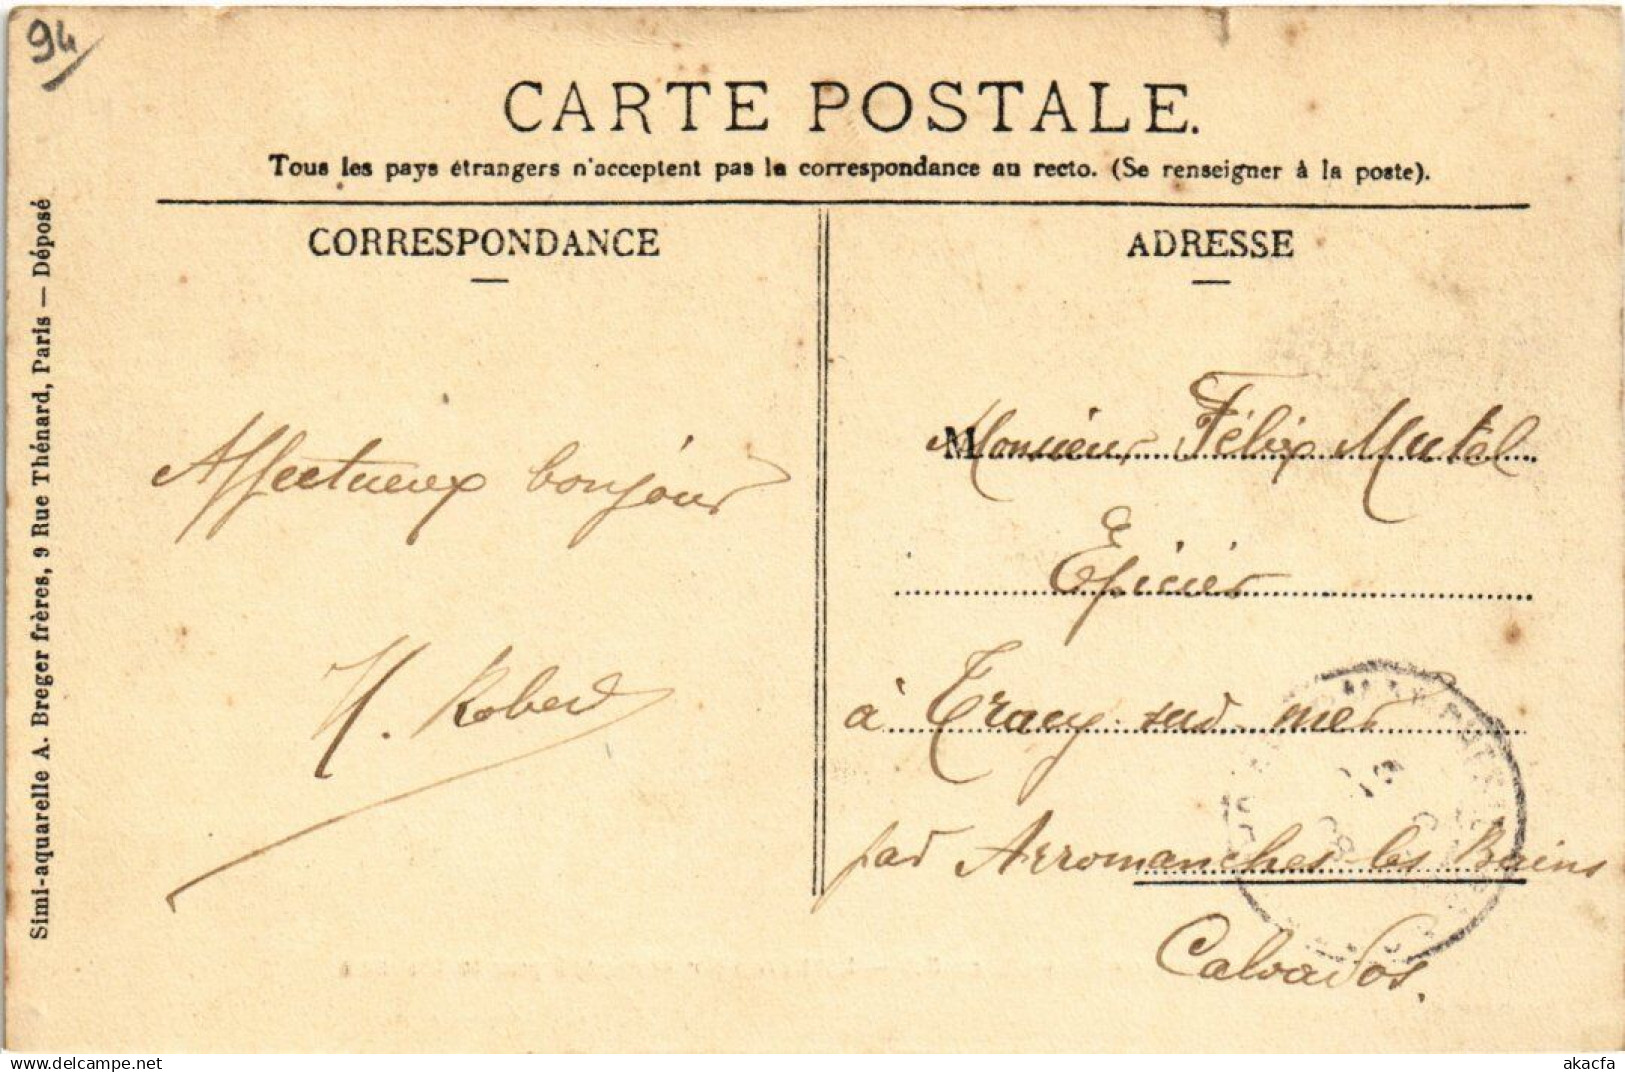 94
CARTE POSTALE.
Tous les pays étrangers n'acceptent pas la correspondance au recto. (Se renseigner à la poste).
CORRESPONDANCE
Affectueux bonjour
H. Robert
ADRESSE
Monsieur Félix Mutel
Epicier
à Tracy sur mer
par Arromanches les Bains
Calvados.
Simi-aquarelle A. Breger frères, 9 Rue Thénard, Paris — Déposé
www.delcampe.net
akacfa